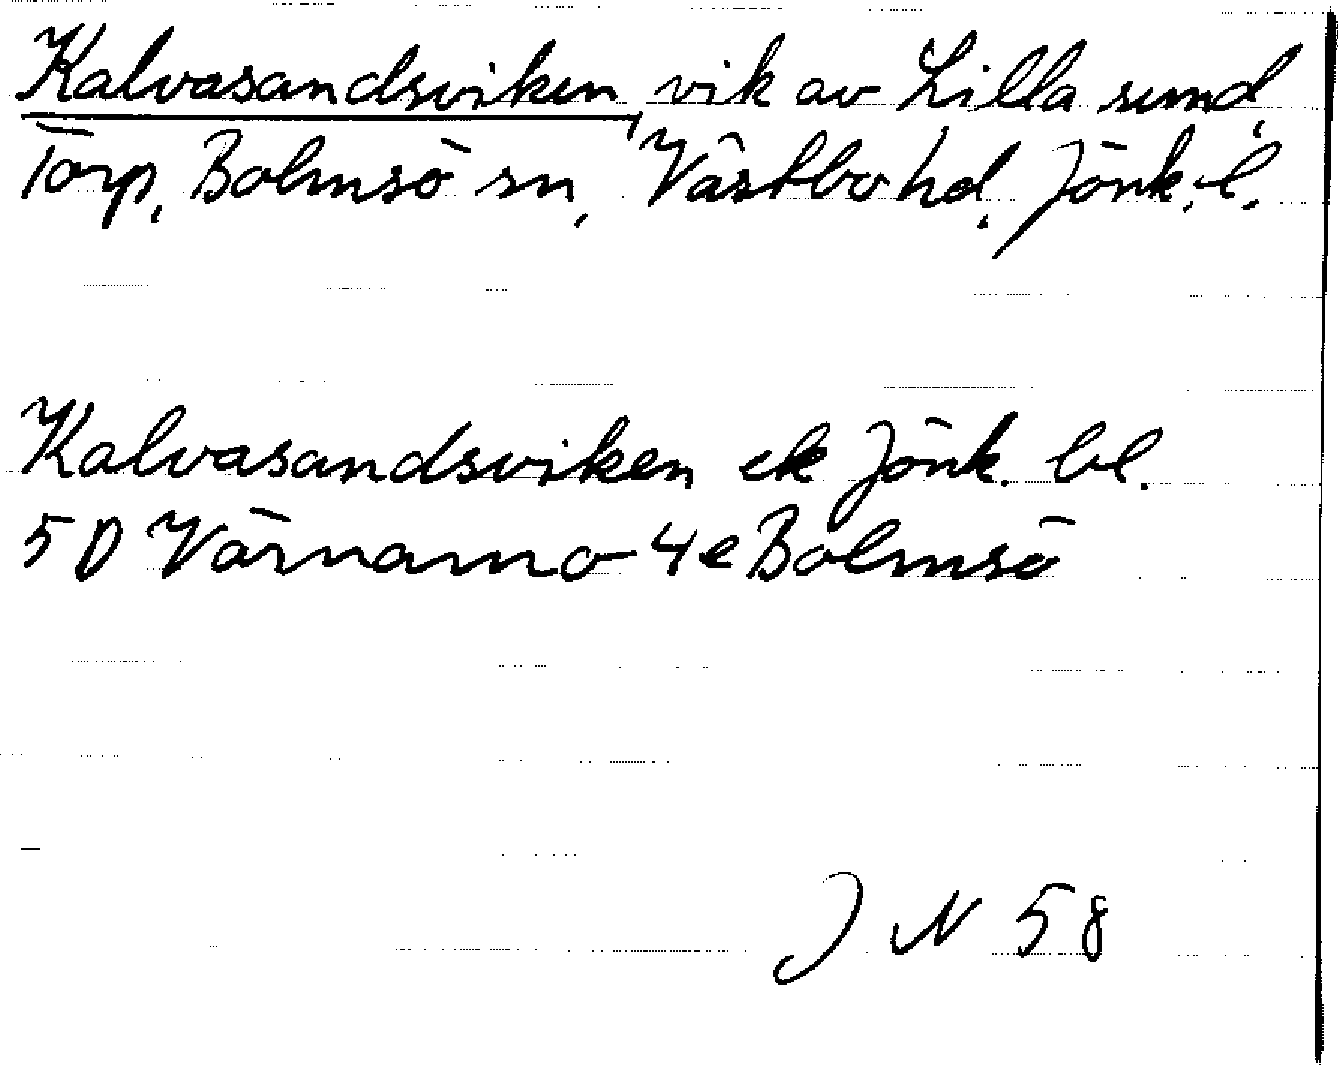 Kalvasandsviken, vik av Lilla sund,
Torp, Bolmsö sn, Västbo hd, Jönk. l.
Kalvasandsviken ek Jönk. bl.
5 D Värnamo 4e Bolmsö
J N 58